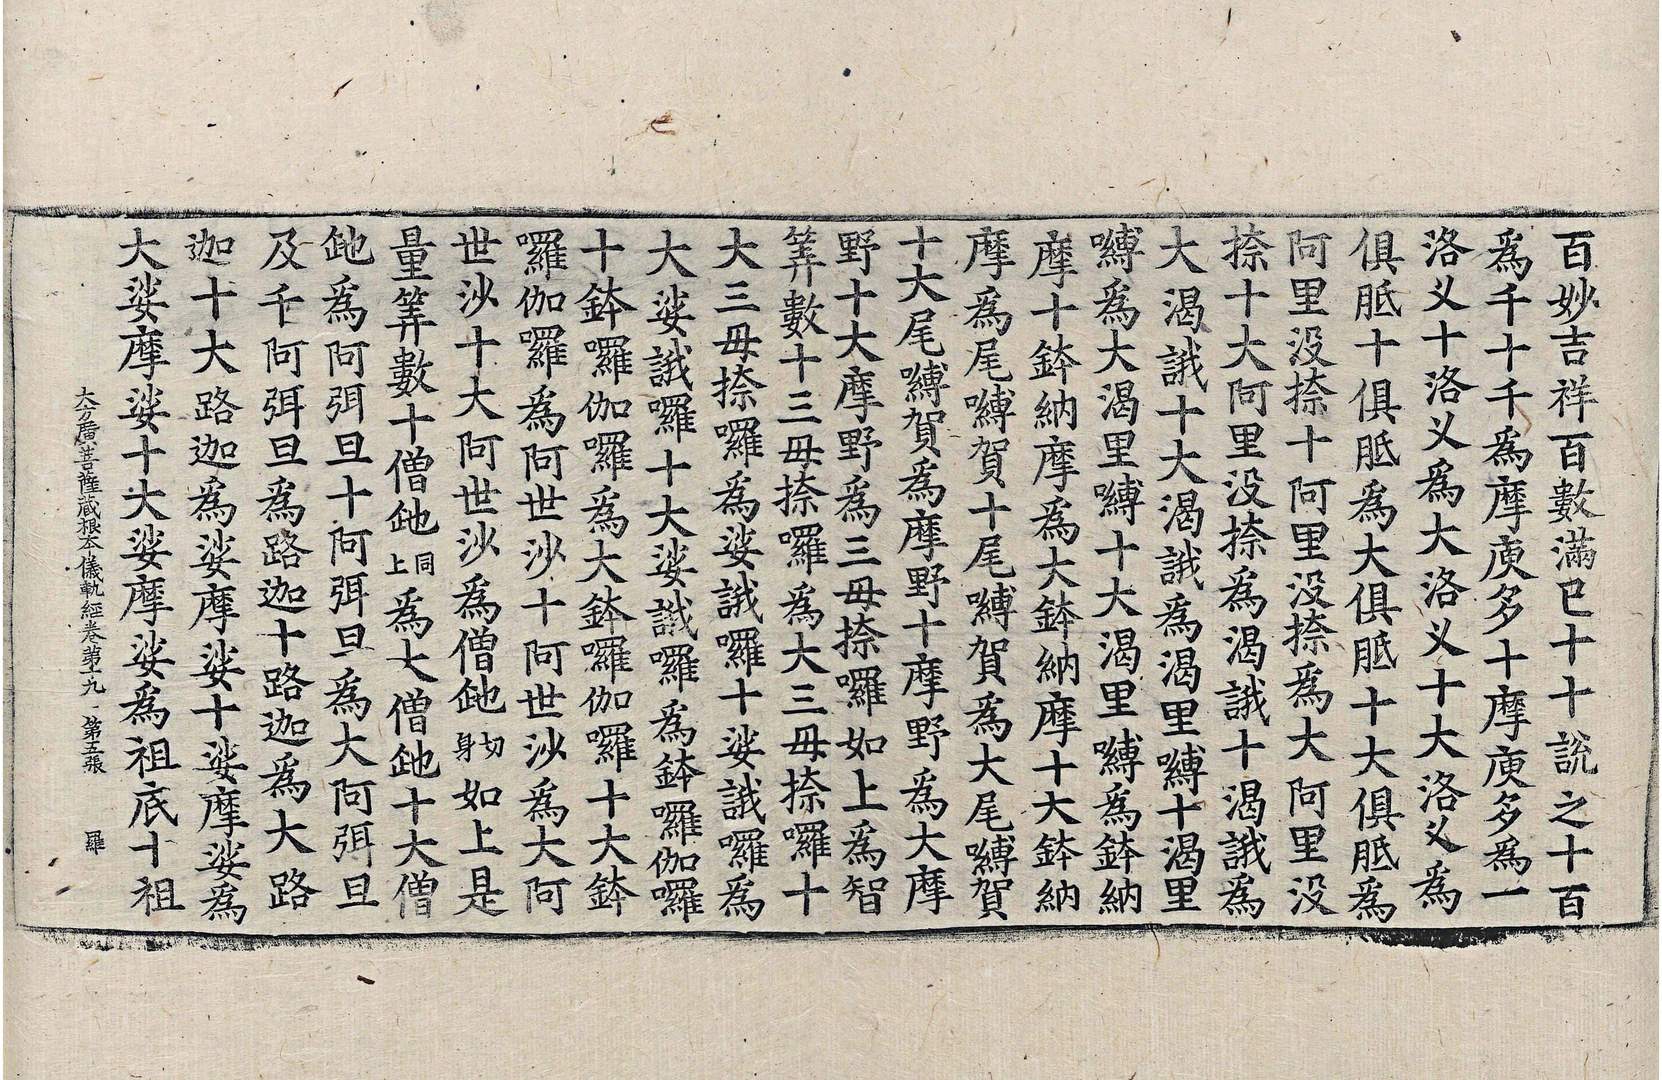 百妙吉祥百數滿已十十說之十百
爲千十千爲摩庾多十摩庾多爲一
洛义十洛义爲大洛义十大洛义爲
俱胝十俱胝爲大俱胝十大俱胝爲
阿里没捺十阿里没捺爲大阿里没
捺十大阿里没捺爲渴誐十渴誐爲
大渴誐十大渴誐爲渴里嚩十渴里
嚩爲大渴里嚩十大渴里嚩爲鉢納
摩十鉢納摩爲大鉢納摩十大鉢納
摩爲尾嚩賀十尾嚩賀爲大尾嚩賀
十大尾嚩賀爲摩野十摩野爲大摩
野十大摩野爲三毋捺囉如上爲智
筭數十三毋捺囉爲大三毋捺囉十
大三毋捺囉爲娑誐囉十娑誐囉爲
大娑誐囉十大娑誐囉爲鉢囉伽囉
十鉢囉伽囉爲大鉢囉伽囉十大鉢
囉伽囉爲阿世沙十阿世沙爲大阿
世沙十大阿世沙爲僧切身如上是
量筭數十僧同上爲大僧十大僧
爲阿弭旦十阿弭旦爲大阿弭旦
及千阿弭旦爲路迦十路迦爲大路
迦十大路迦爲娑摩娑十娑摩娑爲
大娑摩娑十大娑摩娑爲祖底十祖
大方廣菩薩藏根本儀軌經卷第十九 第五張 羅